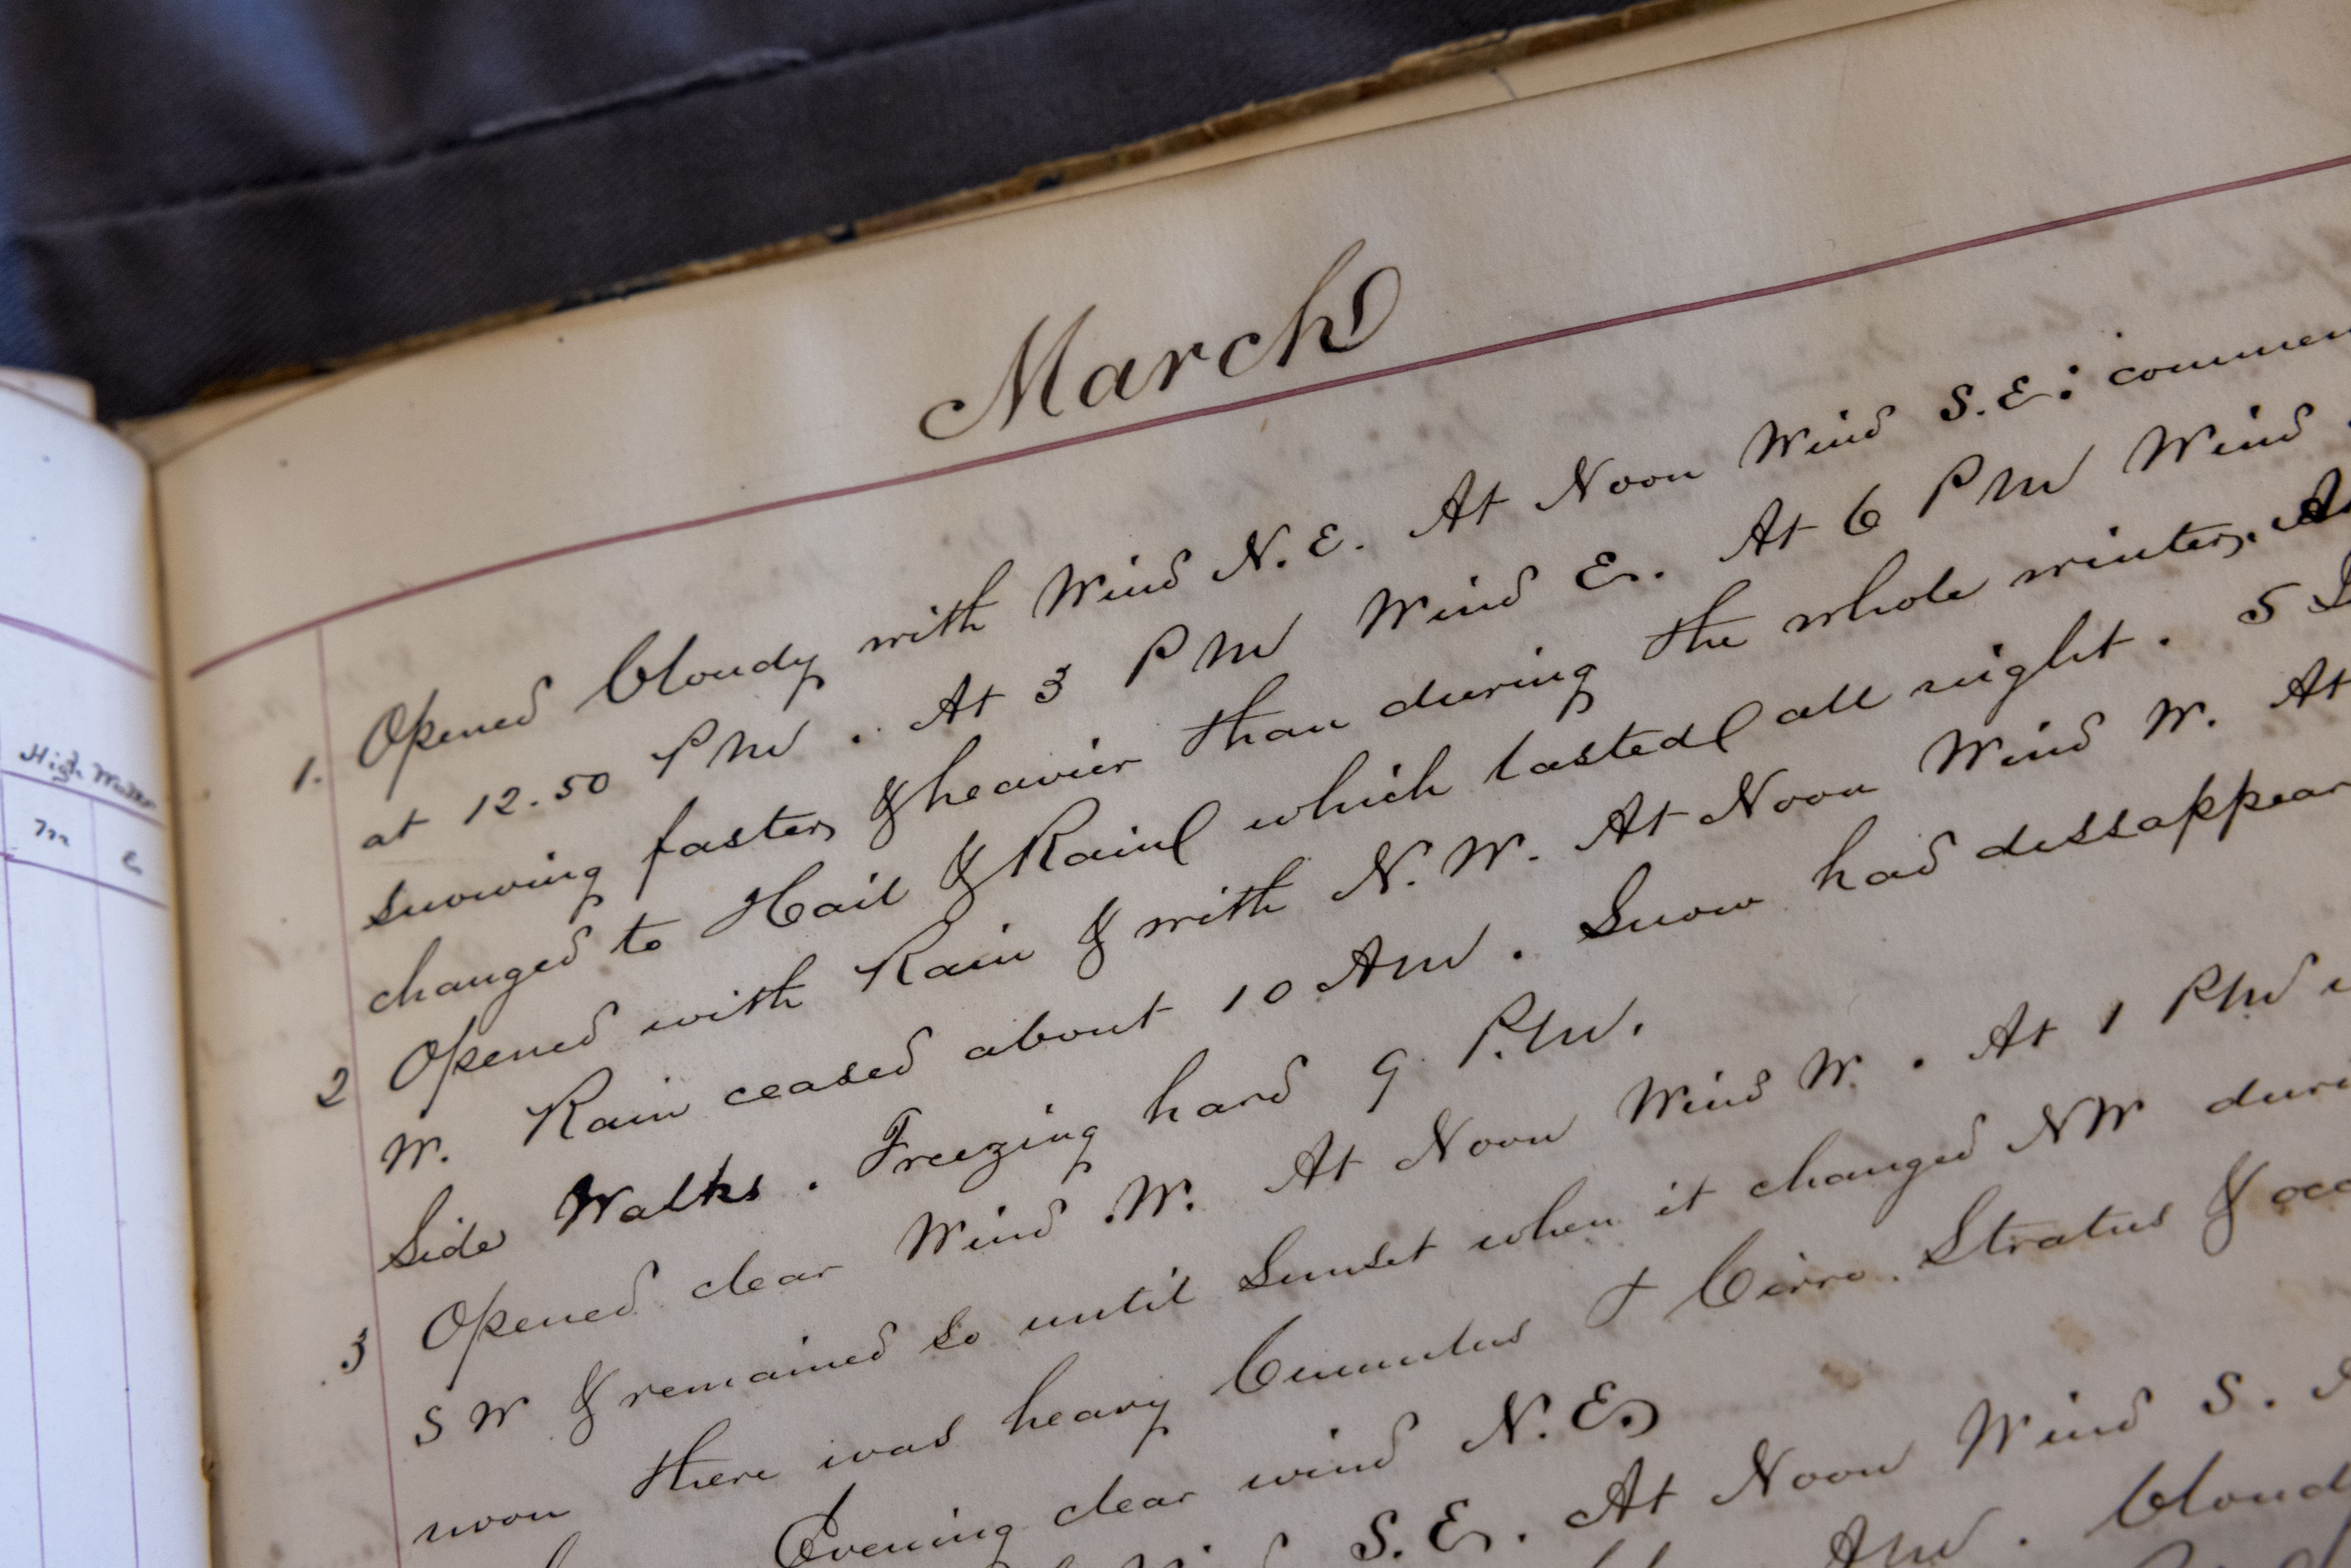 High Water
M E
March
1. Opened Cloudy with Wind N.E. At Noon Wind S.E: commen
at 12.50 PM. At 3 PM Wind E. At 6 PM Wind
snowing faster & heavier than during the whole winter.
changed to Hail & Rain which lasted all night. 5
2 Opened with Rain & with N.W. At Noon Wind W. At
W. Rain ceased about 10 AM. Snow had dissappear
Side Walks. Freezing hard 9 P.M.
3 Opened clear Wind W. At Noon Wind W. At 1 PM
SW & remained so until Sunset when it changed NW duri
noon there was heavy Cumulus & Cirro. Stratus & occ
Evening clear wind N.E.
S.E. At Noon Wind S.
AM. Cloud